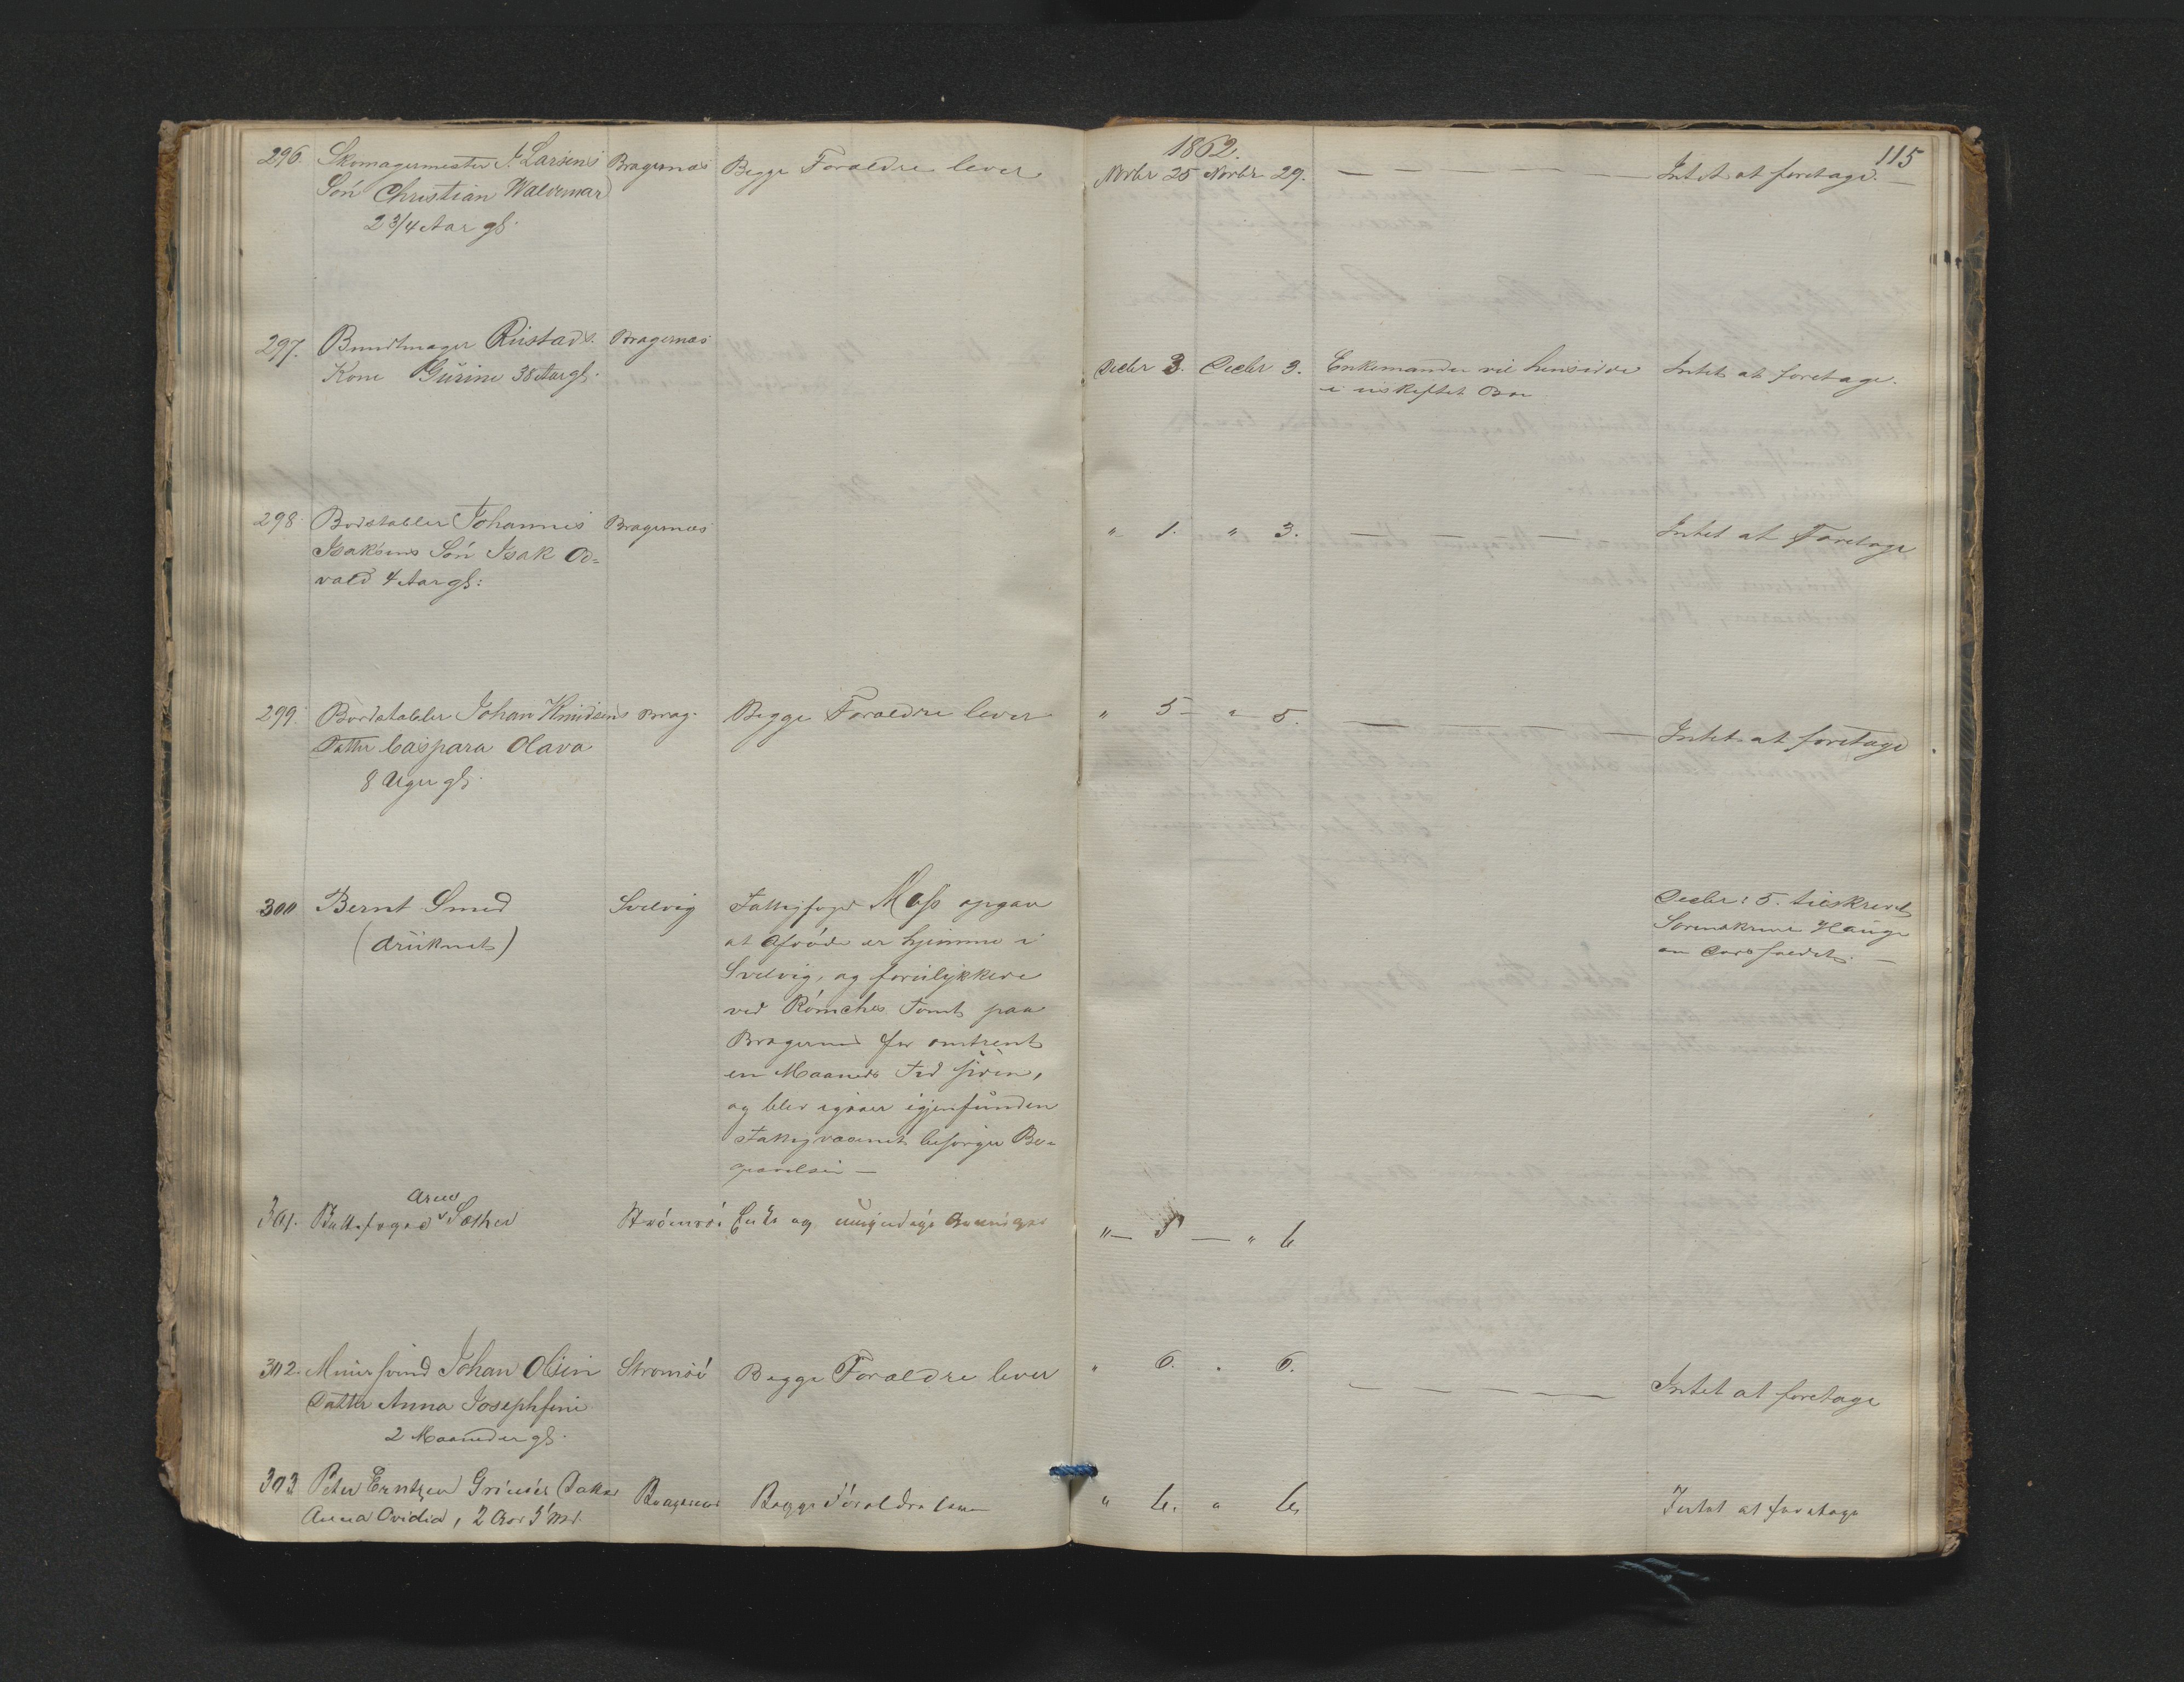 1862.
115
296. Skomagermester J. Larsens Bragernæs Begge Forældre lever Novbr 25 Novbr 29. — — — — — — Intet at foretage. —
Søn Christian Waldemar
2 3/4 Aar gl.
297. Bundtmager Rustads Bragernæs
Kone Gurine 38 Aar gl. Decbr 3. Decbr 3. Enkemanden vil hensidde Intet at foretage.
i uskiftet Bo
298 Bordstabler Johannes Bragernæs " 1. " 3. — — — — Intet at Foretage
Isaksens Søn Isak Od=
vald 4 Aar gl:
299. Bordstabler Johan Knudsens Brag. Begge Forældre lever " 5 – " 5. — — — Intet at foretage
Datter Caspara Olava
8 Uger gl.
300 Bernt Smed Svelvig Fattigfoged Moss opgav Decbr: 5. tilskrevet
(druknet) at Afdøde er hjemme i Sorenskriver Hauge
Svelvig, og forulykkede om Dødsfaldet. —
ved Tomt paa
Bragernæs for omtrent
en Maaneds Tid siden,
og blev igaar igjenfunden
Fattigvæsenet besørger Be=
gravelsen —
Arne
301. Sæther Strømsø. Enke og umyndige "— 5 — " 6
302. Muursvend Johan Olsen Strømsø Begge Forældre lever " 6. " 6. — — — — — Intet at foretage
Datter Anna Josephine
2 Maaneder gl.
303 Peter Erntzen Datter Bragernæs Begge Forældre lever " 6. " 6. Intet at foretage
Anna Ovidia, 2 Aar 5 Md.